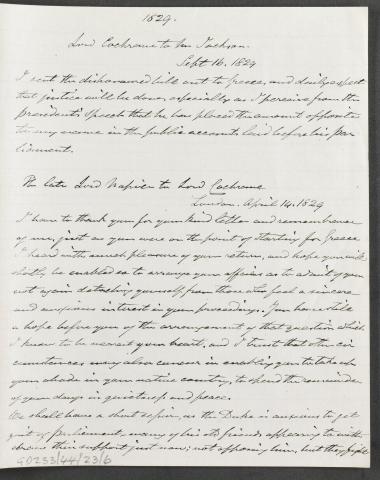 1829.
Lord Cochrane to Mr Jackson.
Sept 16. 1829
I sent the dishonored bill out to Greece, and daily expect
that justice will be done, especially as I perceive from the
presidents Speech that he has placed the amount opposite
to my name in the public accounts laid before his par
liament.
The late Lord Napier to Lord Cochrane
London. April 14. 1829
I have to thank you for your kind letter and remembrance
of me, just as you were on the point of starting for Greece
I heard with much pleasure of your return, and hope you will
shortly be enabled so to arrange your affairs as to admit of your
not again detaching yourself from those who feel a sincere
and anxious interest in your proceedings. You have still
a hope before you of the arrangement of that question which
I know to be nearest your heart, and I trust that other cir
cumstances may also concur in enabling you to take up
your abode in your native country, to spend the remainder
of your days in quietness and peace.
We shall have a short session, as the Duke is anxious to get
quit of Parliament, many of his old friends appearing to with
draw their support just now; not opposing him, but they
GD233/44/23/6